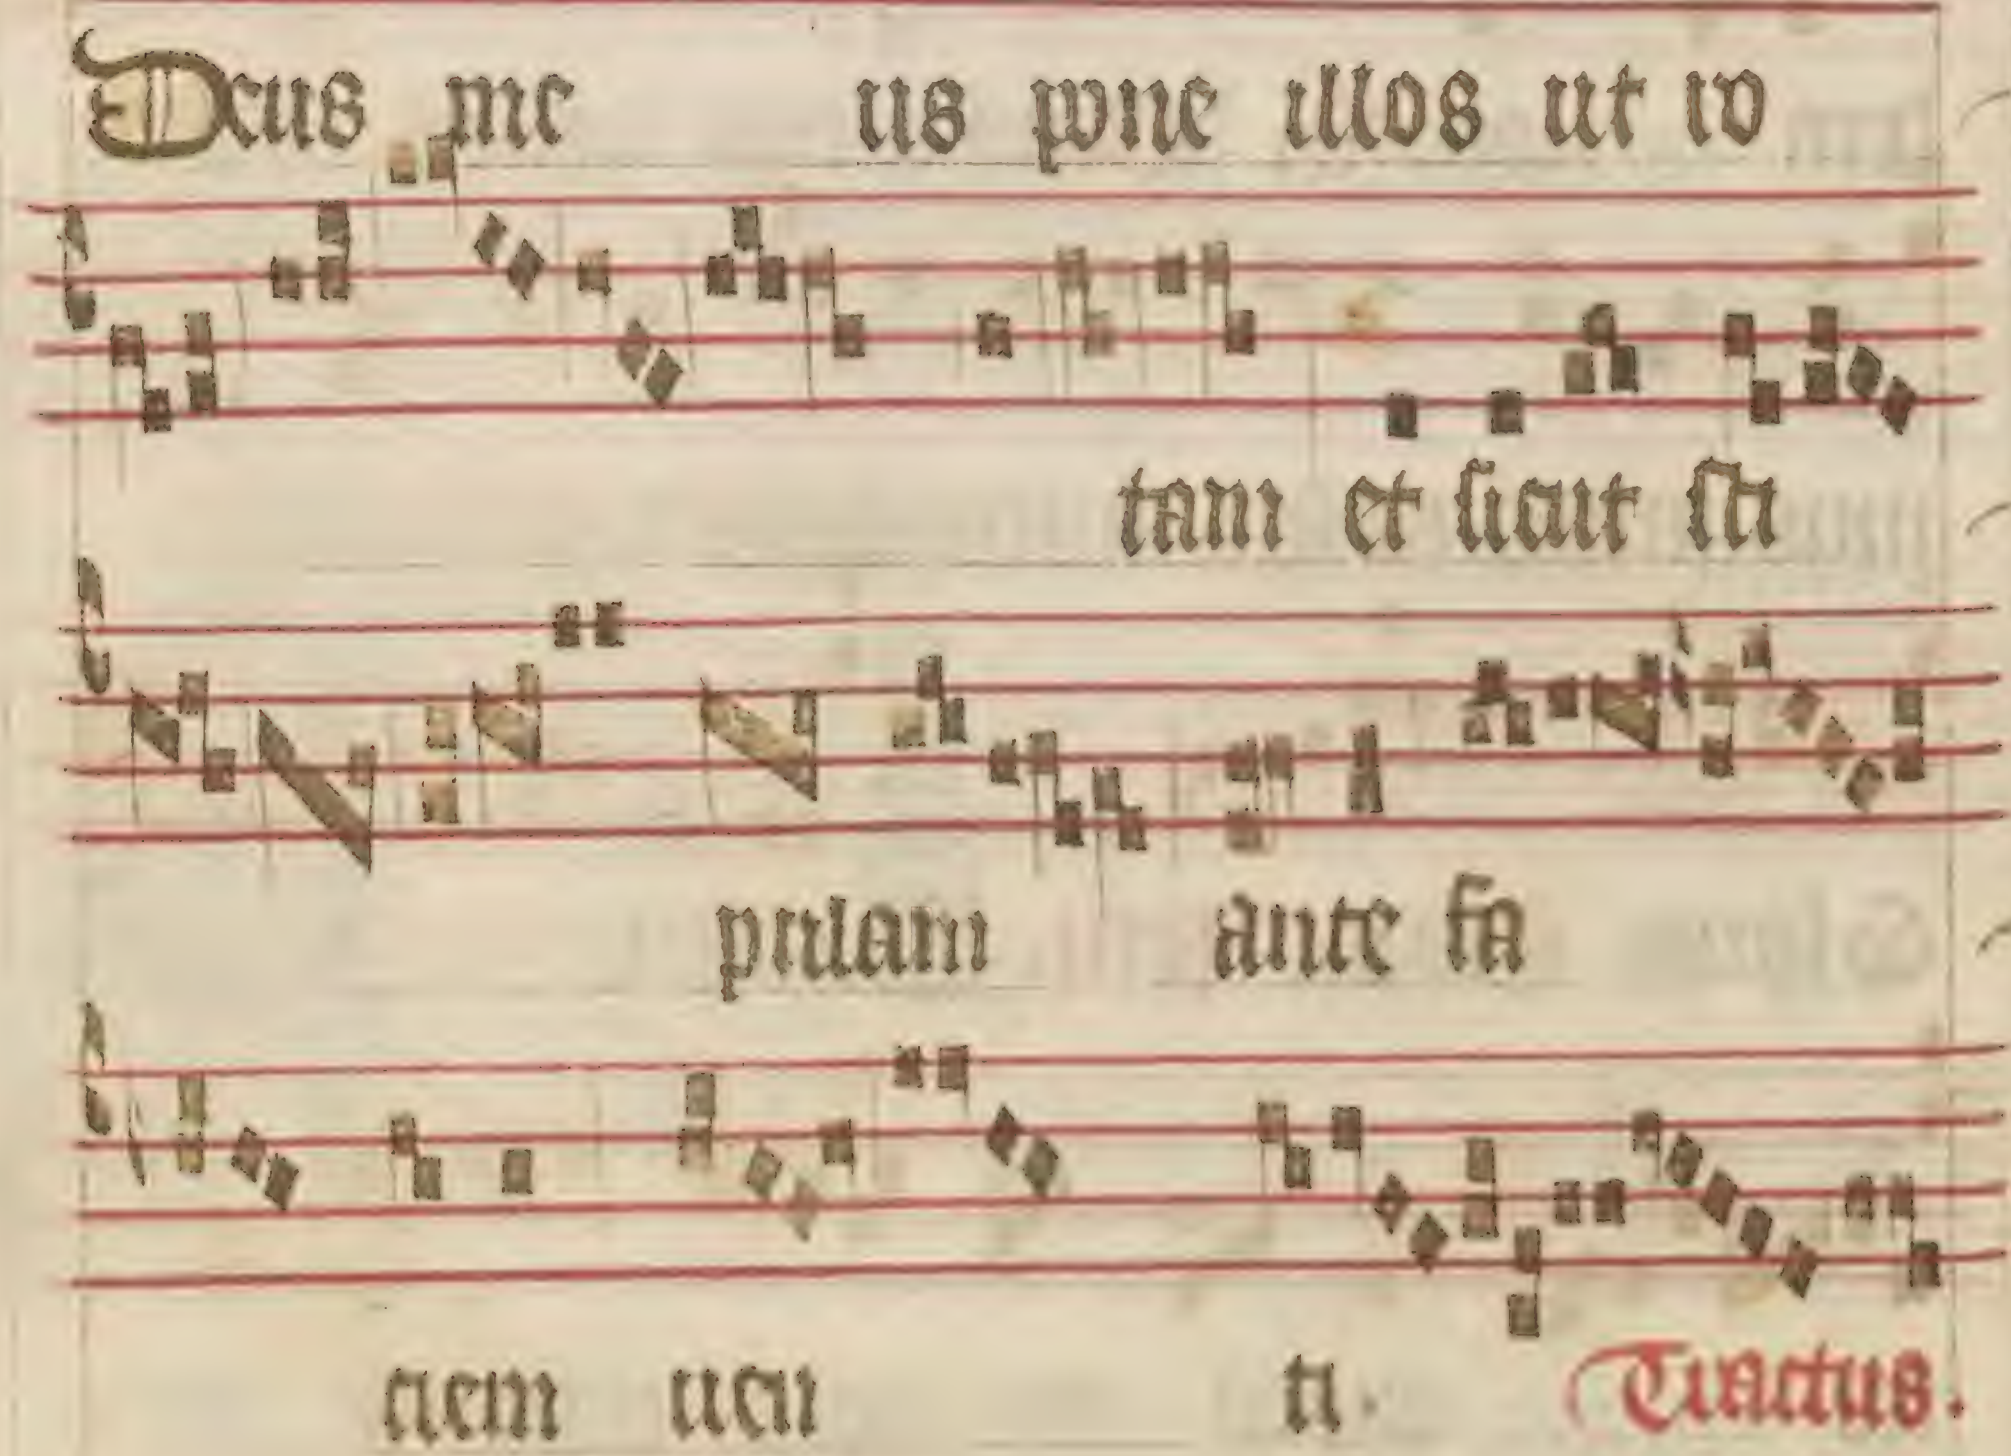 Deus me us pone illos ut ro
tam et sicut sti
pulam ante fa
ciem uen ti.
Tractus.